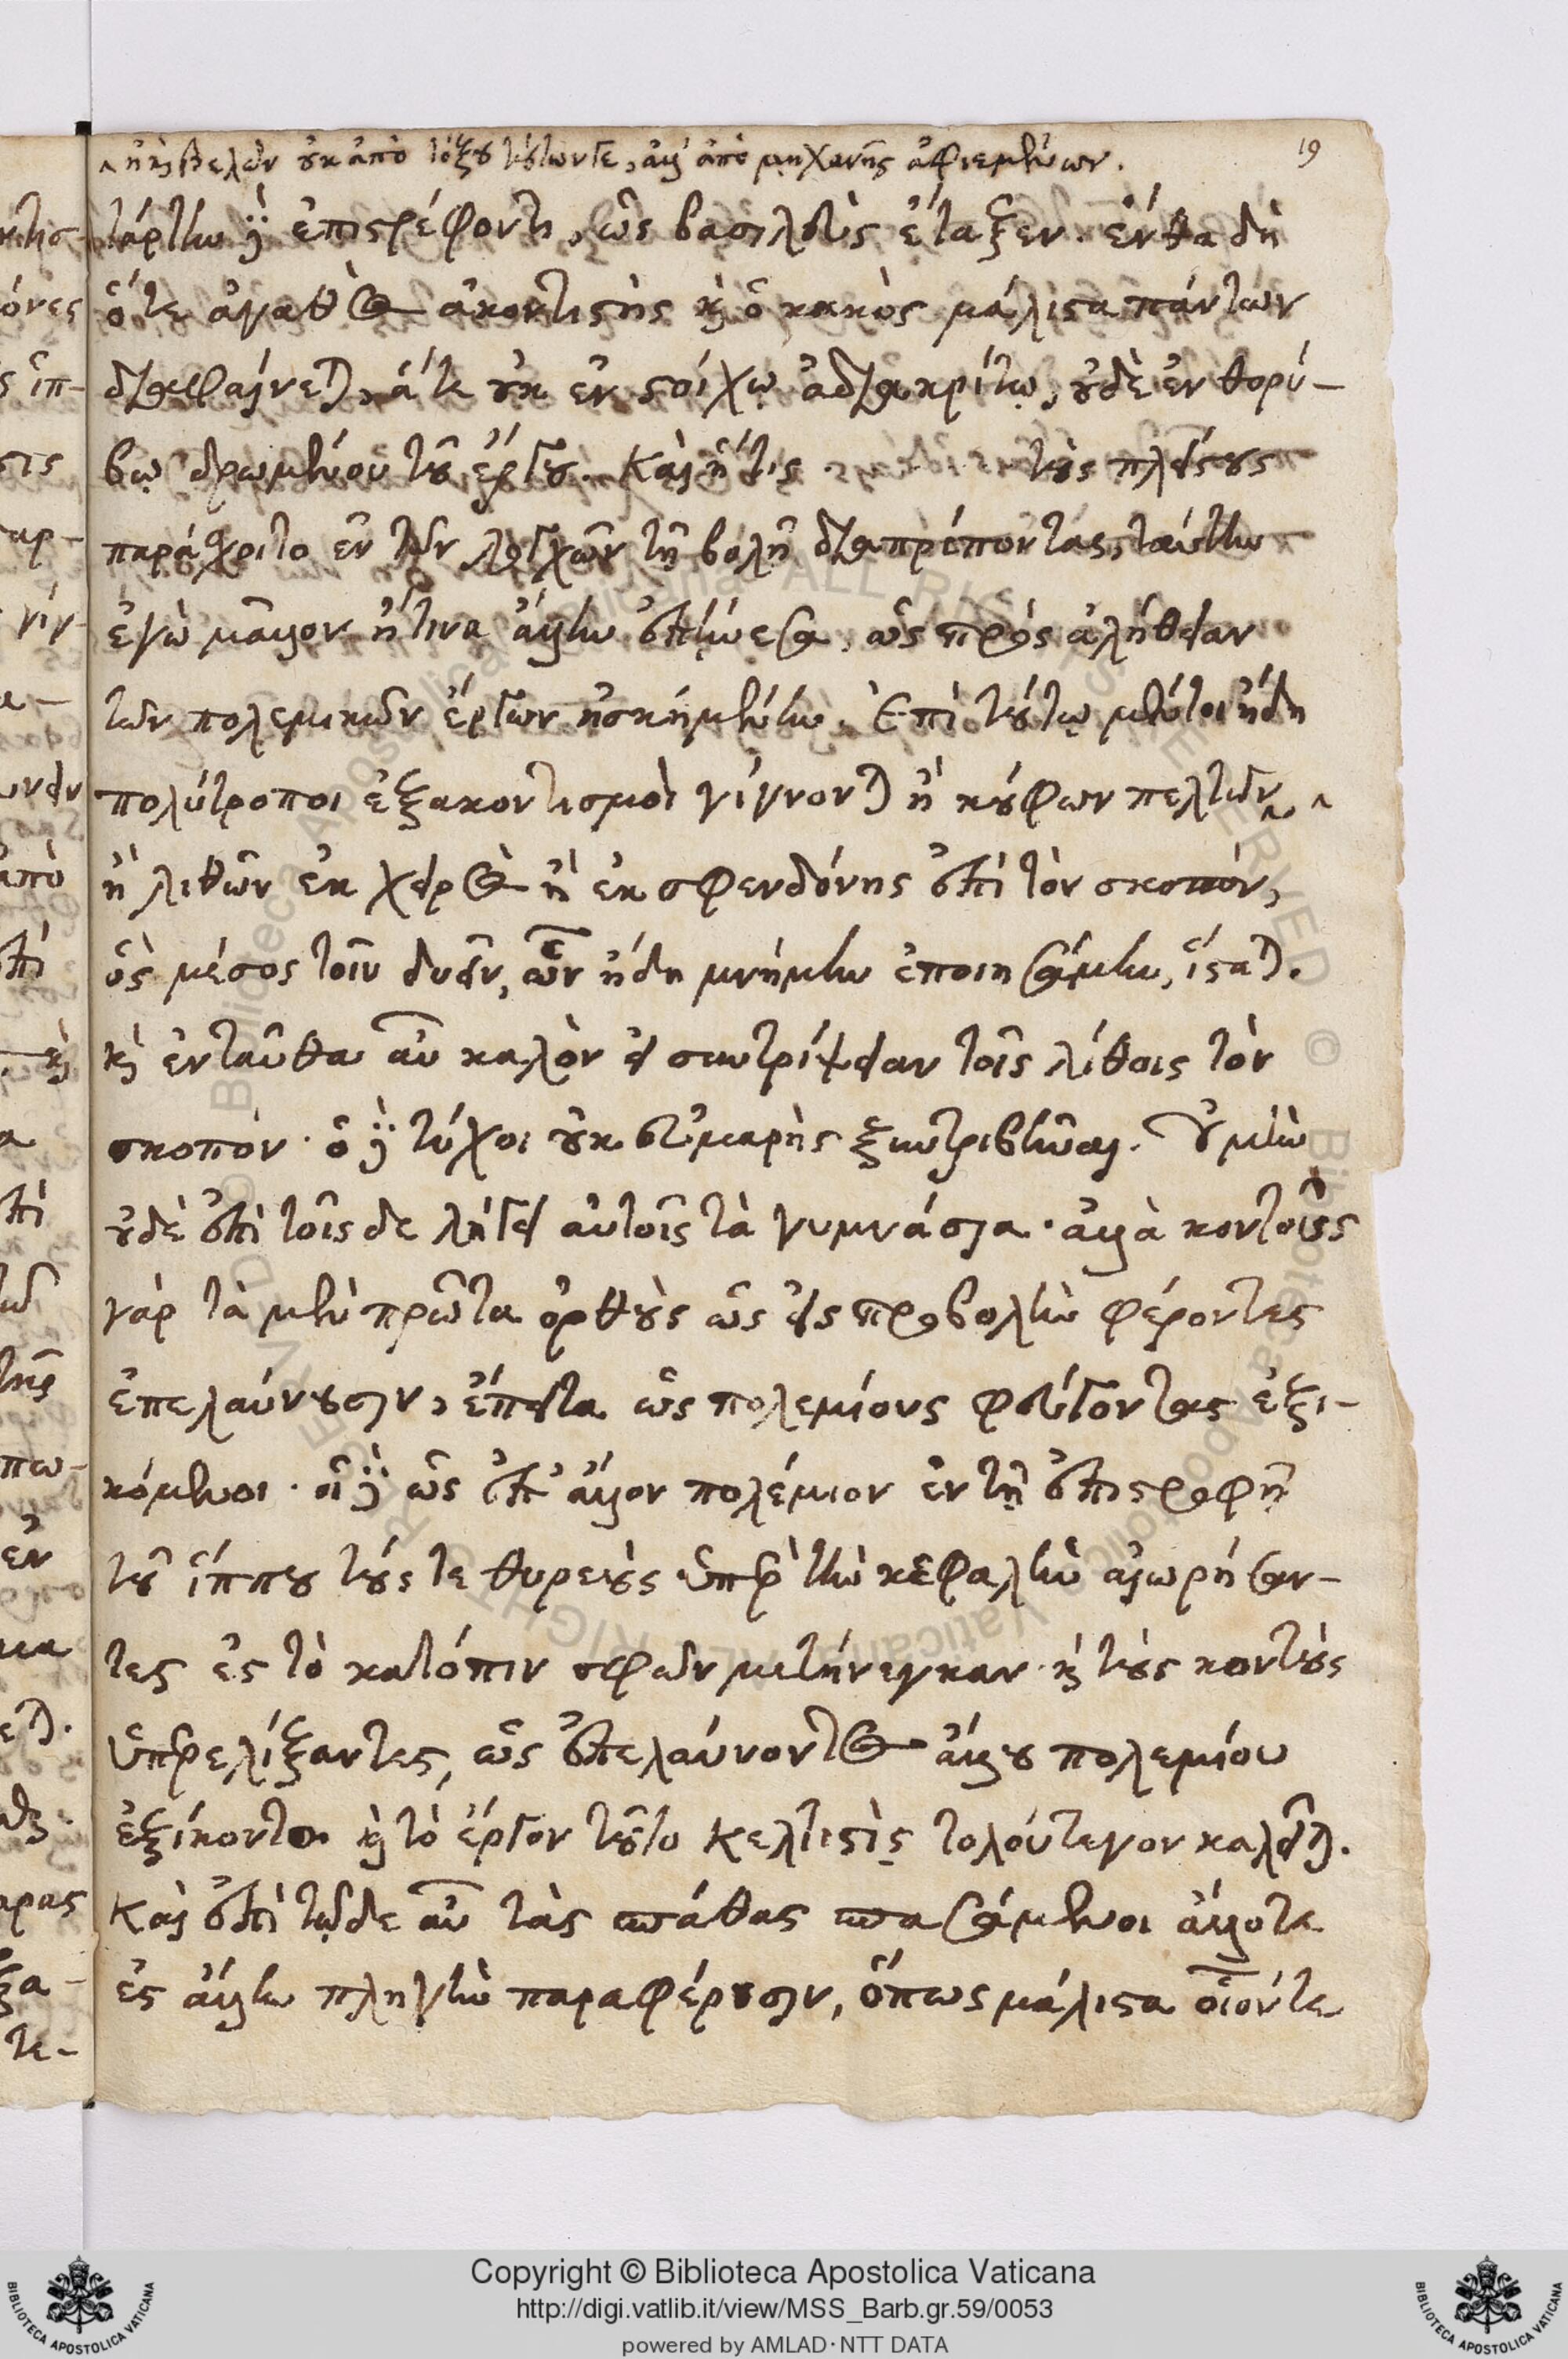 ^ ἢ καὶ βελῶν οὐκ ἀπὸ τόξου τούτων γε, ἀλλ' ἀπὸ μηχανῆς ἀφιεμένων.
19
τάρτην δὲ ἐπιστρέφοντι, ὡς βασιλεὺς ἔταξεν. ἔνθα δὴ
ὅ τε ἀγαθὸς ἀκοντιστὴς καὶ ὁ κακὸς μάλιστα πάντων
διαφαίνεται, ἅτε οὐκ ἐν στοίχῳ ἀδιακρίτῳ, οὐδὲ ἐν θορύ-
βῳ δρωμένου τοῦ ἔργου. Καὶ ἥτις τοὺς πλείστους
παράσχοιτο ἐν τῶν λογχῶν τῇ βολῇ διαπρέποντας, ταύτην
ἐγὼ μᾶλλον ἤ τινα ἄλλην ἐπῄνεσα, ὡς πρὸς ἀλήθειαν
τῶν πολεμικῶν ἔργων ἠσκημένην. Ἐπὶ τούτῳ μέντοι ἤδη
πολύτροποι ἐξακοντισμοὶ γίγνονται ἢ κούφων πελτῶν ^
ἢ λιθῶν ἐκ χειρὸς ἢ ἐκ σφενδόνης ἐπὶ τὸν σκοπόν,
ὃς μέσος τοῖν δυεῖν, ὧν ἤδη μνήμην ἐποιησάμην, ἵσταται.
καὶ ἐνταῦθα αὖ καλὸν εἰ συντρίψειαν τοῖς λίθοις τὸν
σκοπόν. ὁ δὲ τύχοι οὐκ εὐμαρὴς ξυντριβῆναι. Οὐ μὴν
οὐδὲ ἐπὶ τοῖς δε λήγει αὐτοῖς τὰ γυμνάσια. ἀλλὰ κοντοὺς
γὰρ τὰ μὲν πρῶτα ὀρθοὺς ὡς εἰς προβολὴν φέροντες
ἐπελαύνουσιν, ἔπειτα ὡς πολεμίους φεύγοντας ἐξι-
κόμενοι. οἱ δὲ ὡς ἐπ' ἄλλον πολέμιον ἐν τῇ ἐπιστροφῇ
τοῦ ἵππου τούς τε θυρεοὺς ὑπὲρ τὴν κεφαλὴν αἰωρήσαν-
τες ἐς τὸ κατόπιν σφῶν μετήνεγκαν. καὶ τοὺς κοντοὺς
ὑπερελίξαντες, ὡς ἐπελαύνοντος ἄλλου πολεμίου
ἐξίκοντο. καὶ τὸ ἔργον τοῦτο Κελτιστὶς τολούτεγον καλεῖται.
Καὶ ἐπὶ τῷδε αὖ τὰς σπάθας σπασάμενοι ἄλλοτε
ἐς ἄλλην πληγὴν παραφέρουσιν, ὅπως μάλιστα οἷόντε
Copyright © Biblioteca Apostolica Vaticana
http://digi.vatlib.it/view/MSS_Barb.gr.59/0053
powered by AMLAD·NTT DATA